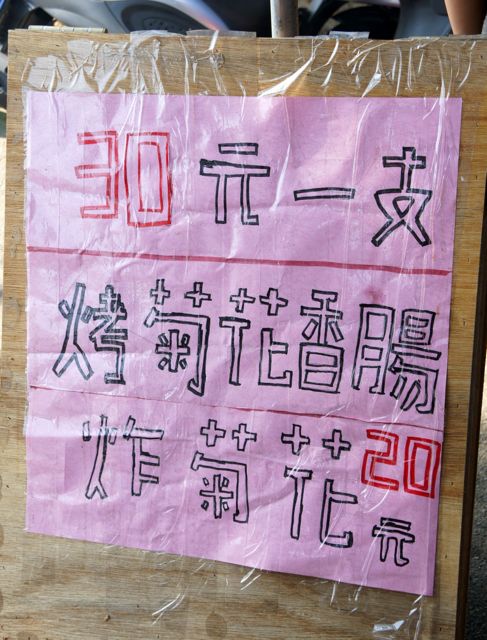 30元一支
烤菊花香腸
炸菊花20元